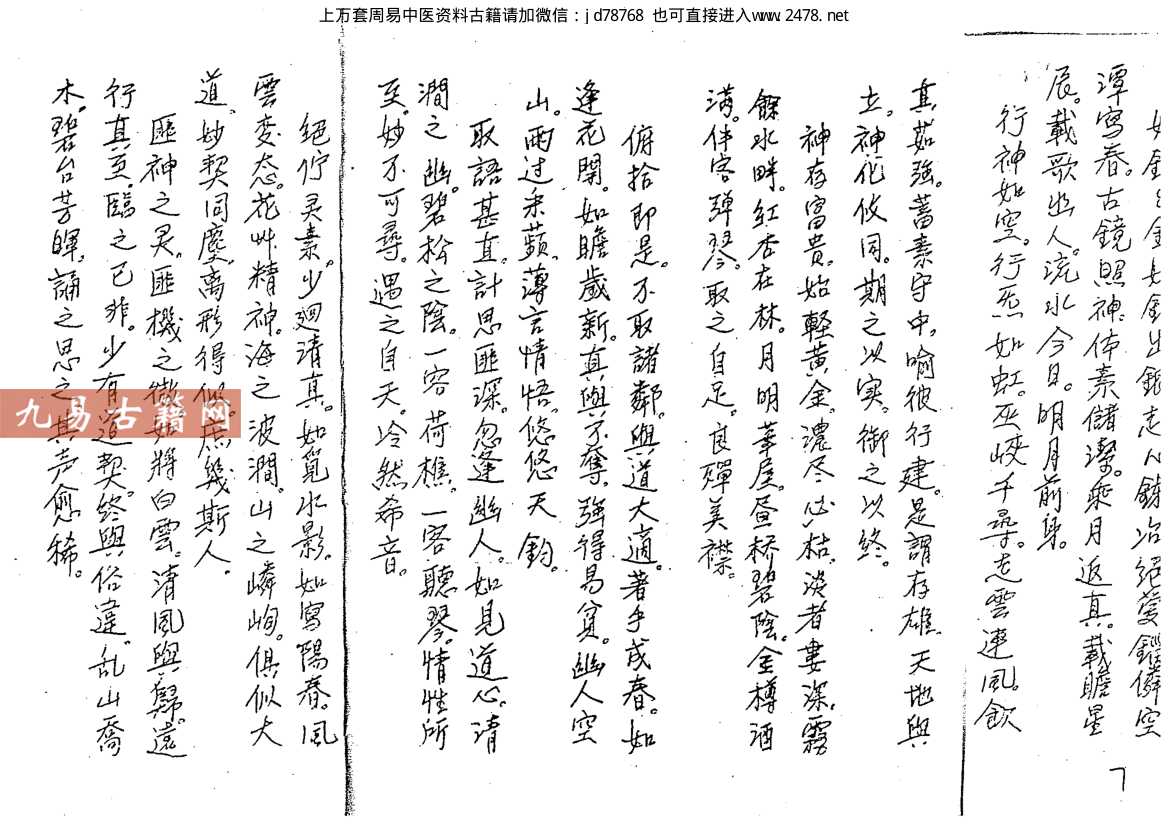 上万套周易中医资料古籍请加微信：jd78768 也可直接进入www.2478.net
如鉛出銀走心鍊冶絕愛緇磷空
潭寫春。古鏡照神。体素儲潔。乘月返真。載瞻星
辰。載歌幽人。流水今日。明月前身。
行神如空。行炁如虹。巫峽千尋。走雲連风。飲
真茹強。蓄素守中。喻彼行建。是謂存雄。天地與
立。神化攸同。期之以实。御之以終。
神存富貴。始軽黃金。濃尽必枯。淡者婁深。霧
餘水畔。紅杏在林。月明華屋。昼桥碧陰。金樽酒
满。伴客弹琴。取之自足。良殫美襟。
俯拾即是。不取諸鄰。與道大適。著手成春。如
逢花開。如瞻歲新。真與不奪。強得易貧。幽人空
山。雨过采蘋。薄言情悟。悠悠天鈞。
取語甚直。計思匪深。忽逢幽人。如見道心。清
澗之幽。碧松之陰。一客荷樵。一客聽琴。情性所
至。妙不可尋。遇之自天。冷然希音。
絕佇灵素。少廻清真。如覓水影。如寫陽春。风
雲変态。花艸精神。海之波澜。山之嶙峋。俱似大
道。妙契同塵。離形得似。庶幾斯人。
匪神之灵。匪機之微。如將白雲。清風與歸。遠
行真至。臨之已非。少有道契。終與俗違。乱山喬
木。碧台芳暉。誦之思之。其声愈稀。
7
九易古籍网